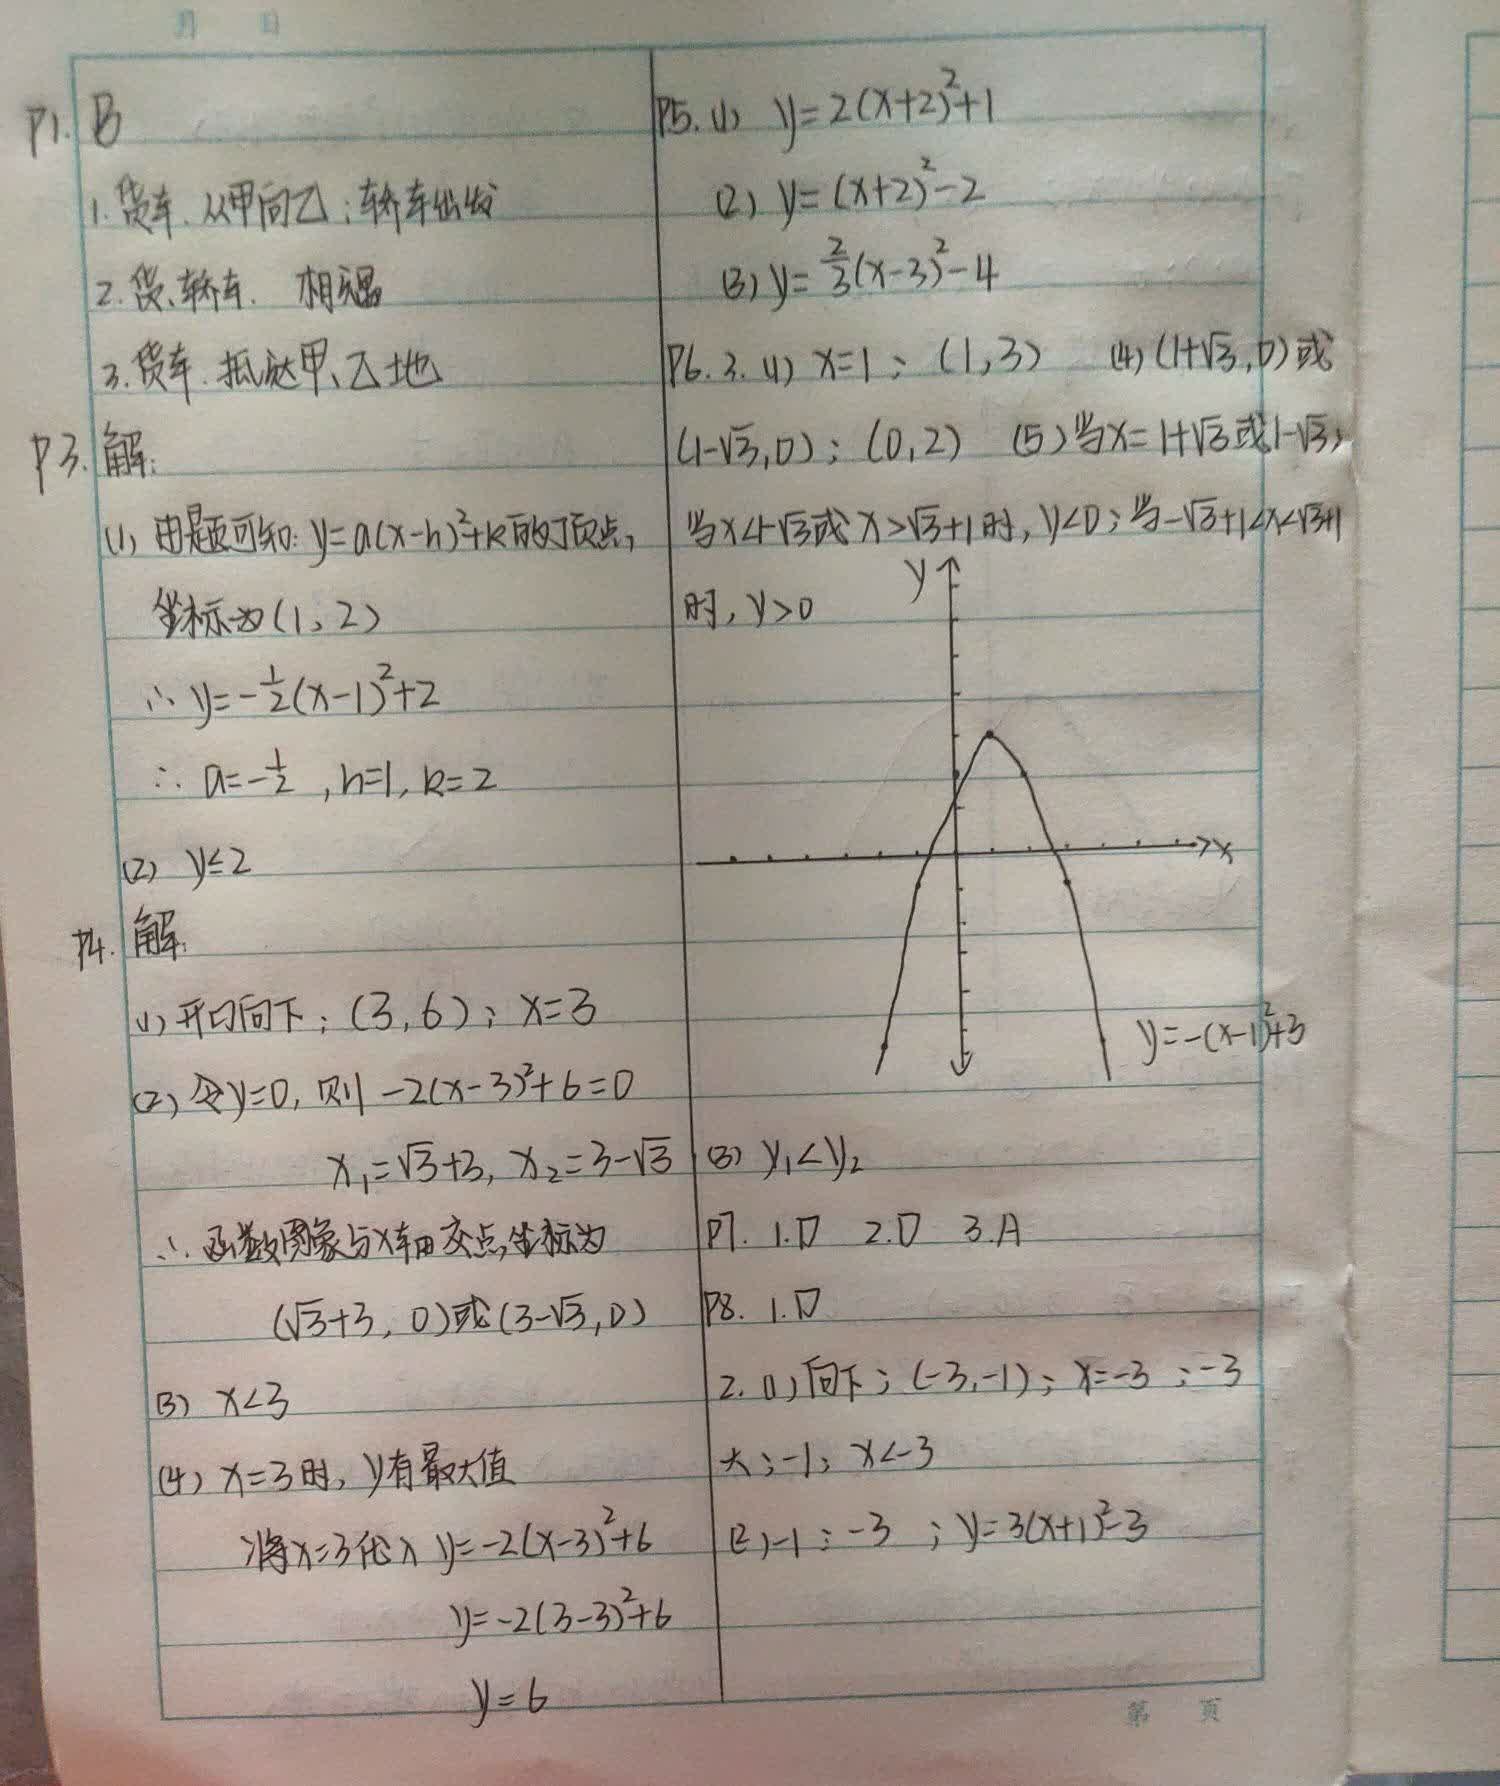 月 日
P1. B
1. 货车. 从甲向乙; 轿车出发
2. 货、轿车. 相遇
3. 货车. 抵达甲、乙地
P3. 解:
(1) 由题可知: y=a(x-h)²+k的顶点,
坐标为(1, 2)
∴ y=-1/2(x-1)²+2
∴ a=-1/2, h=1, k=2
(2) y≤2
P4. 解:
(1) 开口向下; (3, 6); x=3
(2) 令y=0, 则 -2(x-3)²+6=0
x₁=√3+3, x₂=3-√3
∴ 函数图象与x轴交点坐标为
(√3+3, 0)或(3-√3, 0)
(3) x<3
(4) x=3时, y有最大值
将x=3代入 y=-2(x-3)²+6
y=-2(3-3)²+6
y=6
P5. (1) y=2(x+2)²+1
(2) y=(x+2)²-2
(3) y=2/3(x-3)²-4
P6. 3. (1) x=1; (1, 3) (4) (1+√3, 0)或
(1-√3, 0); (0, 2) (5) 当x=1+√3或1-√3;
当x<1-√3或x>√3+1时, y<0; 当-√3+1<x<√3+1
时, y>0
y
x
y=-(x-1)²+3
(3) y₁<y₂
P7. 1.D 2.D 3.A
P8. 1.D
2. (1) 向下; (-3, -1); x=-3; -3
大; -1; x<-3
(2) -1; -3; y=3(x+1)²-3
第 页